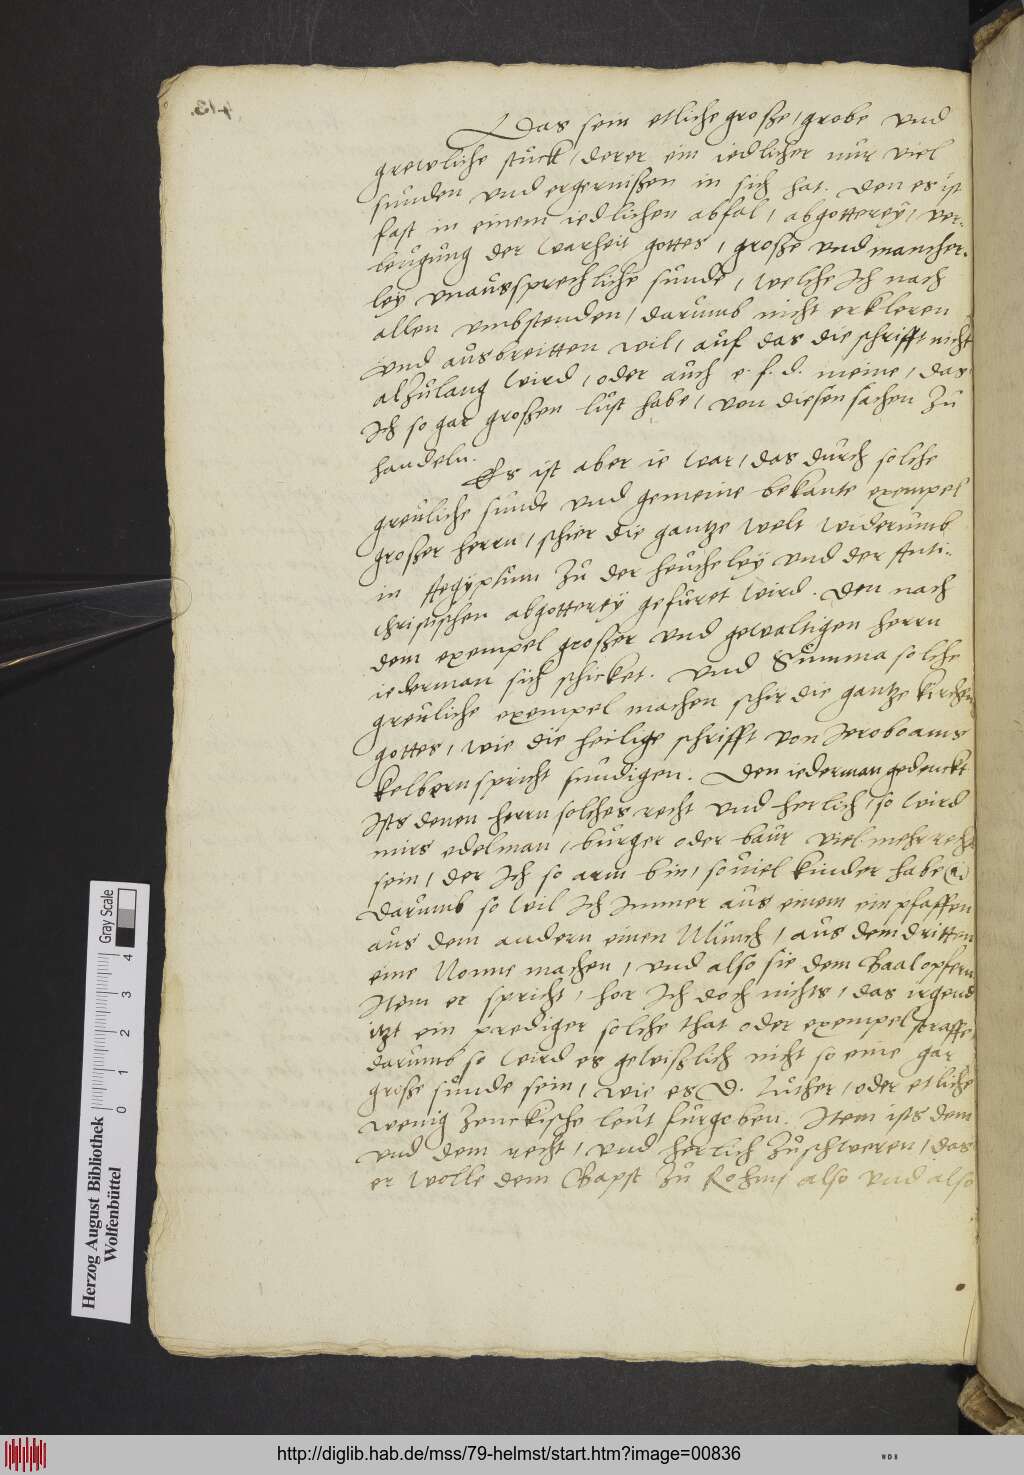 Das sein etliche große, grobe vnd
grewliche stuck, derer ein iedlicher nur viel
sunden vnd ergernißen in sich hat. Den es ist
fast in einem iedlichen abfal, abgotterey, ver-
leugung der Warheit gottes, große vnd mancher-
ley vnaussprechliche sunde, welche Ich nach
allen vmbstenden, darumb nicht erkleren
vnd ausbreitten wil, auf das die schrifft nicht
alzulang wird, oder auch e. f. d. meine, das
Ich so gar großen lust habe, von diesen sachen zu
handeln.
Es ist aber ie war, das durch solche
greuliche sunde vnd gemeine bekante exempel
großer herrn, schier die gantze welt widerumb
in Aegyptum zu der heucheley vnd der Anti-
christischen abgotterey gefuret wird. Den nach
dem exempel großer vnd gewaltigen herrn
iederman sich schicket. Vnd Summa solche
greuliche exempel machen schir die gantze kirchen
gottes, wie die heilige schrifft von Jeroboams
kelbern spricht sundigen. Den iederman gedenckt
Ists denen herrn solches recht vnd herlich, so wird
mirs edelman, burger oder baur viel mehr recht
sein, der Ich so arm bin, souiel kinder habe
Darumb so wil Ich Immer aus einem ein pfaffen
aus dem andern einen Munch, aus dem dritten
eine Nonne machen, vnd also sie dem Baal opfern
Item er spricht, hor Ich doch nichts, das irgend
itzt ein prediger solche that oder exempel straffe,
darumb so wird es gewißlich nicht so eine gar
große sunde sein, wie es D. Luther, oder etliche
wenig zenckische leut furgeben. Item ists dem
vnd dem recht, vnd herlich zuschweren, das
er wolle dem Bapst zu Rohm, also vnd also
Herzog August Bibliothek
Wolfenbüttel
Gray Scale
0 1 2 3 4
http://diglib.hab.de/mss/79-helmst/start.htm?image=00836